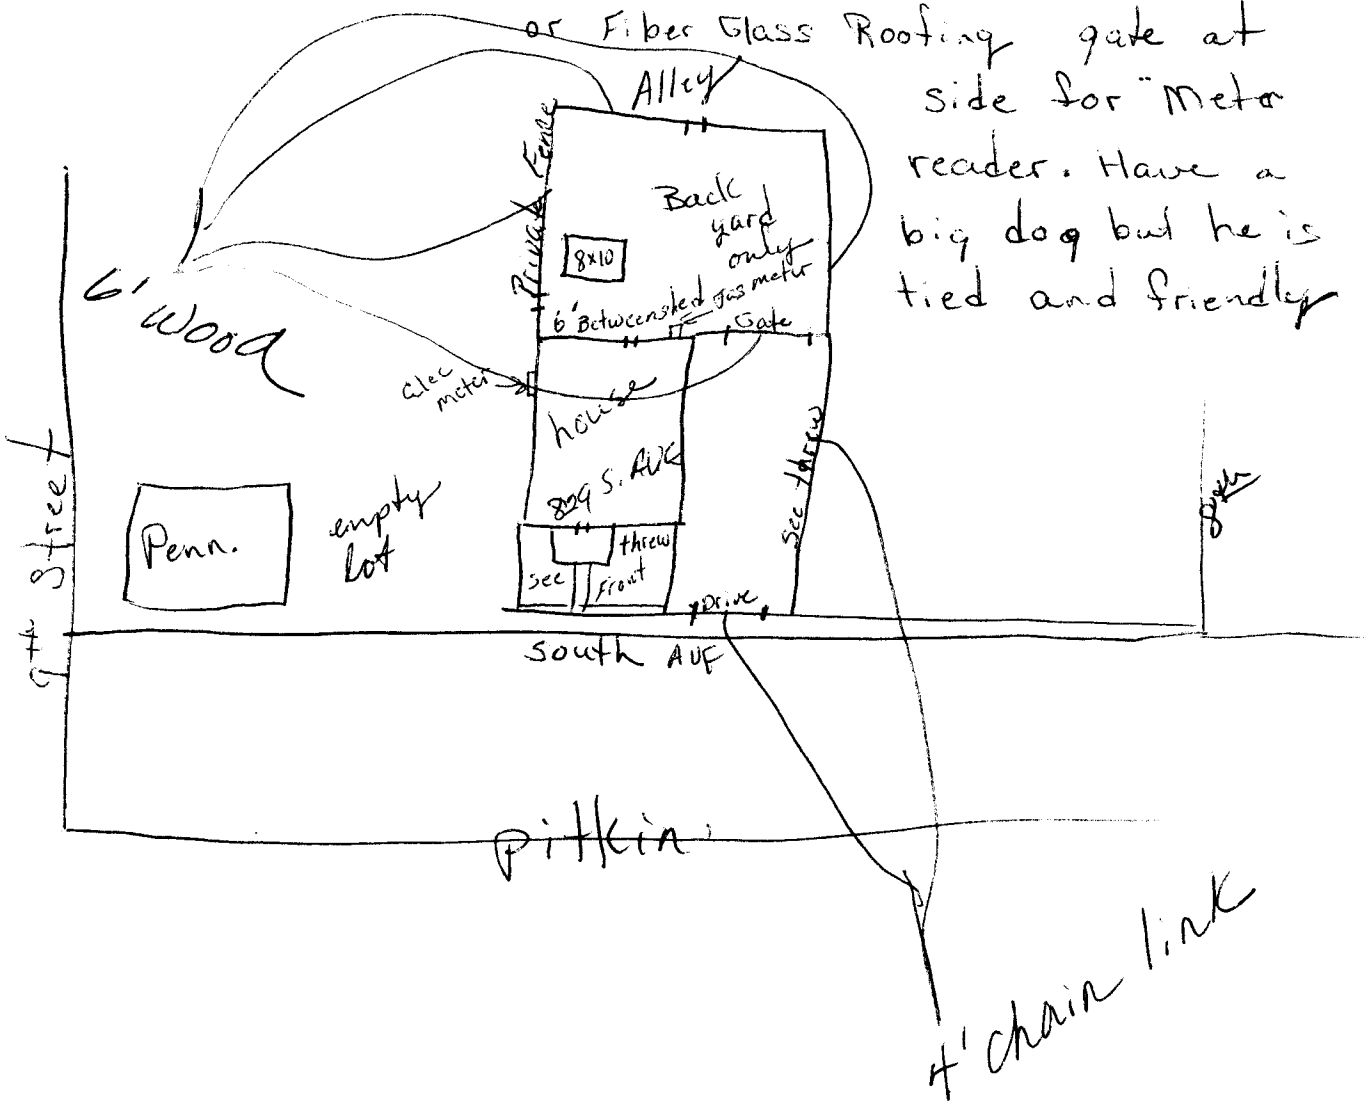 or Fiber Glass Roofing gate at
side for "Meter
reader. Have a
big dog but he is
tied and friendly
Alley
Private Fence
Back
yard
only
8x10
6' Between shed
gas meter
Gate
6' Wood
elec
meter
house
829 S. AVE
see threw
7th Street
Penn.
empty
lot
see threw
Front
Drive
South AVE
pitkin
4' chain link